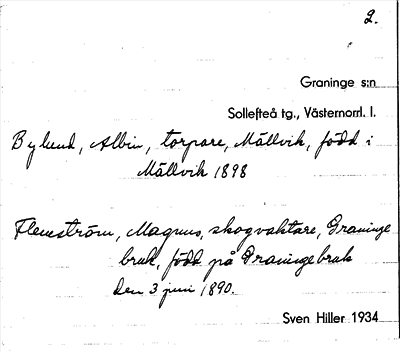 2.
Graninge s:n
Sollefteå tg., Västernorrl. l.
Bylund, Albin, torpare, Mällvik, född i
Mällvik 1898
Flemström, Magnus, skogvaktare, Graninge
bruk, född på Graninge bruk
den 3 juni 1890.
Sven Hiller 1934